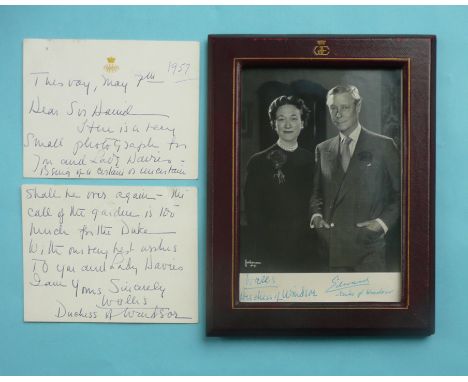 Tuesday, May 7th 1957
Dear Sir David
Here is a very
small photograph for
you and Lady Davies -
Being of a certain or uncertain
shall be over again - the
call of the garden is too
much for the Duke
With our very best wishes
To you and Lady Davies
I am Yours Sincerely
Wallis
Duchess of Windsor
Wallis
Duchess of Windsor
Edward
Duke of Windsor